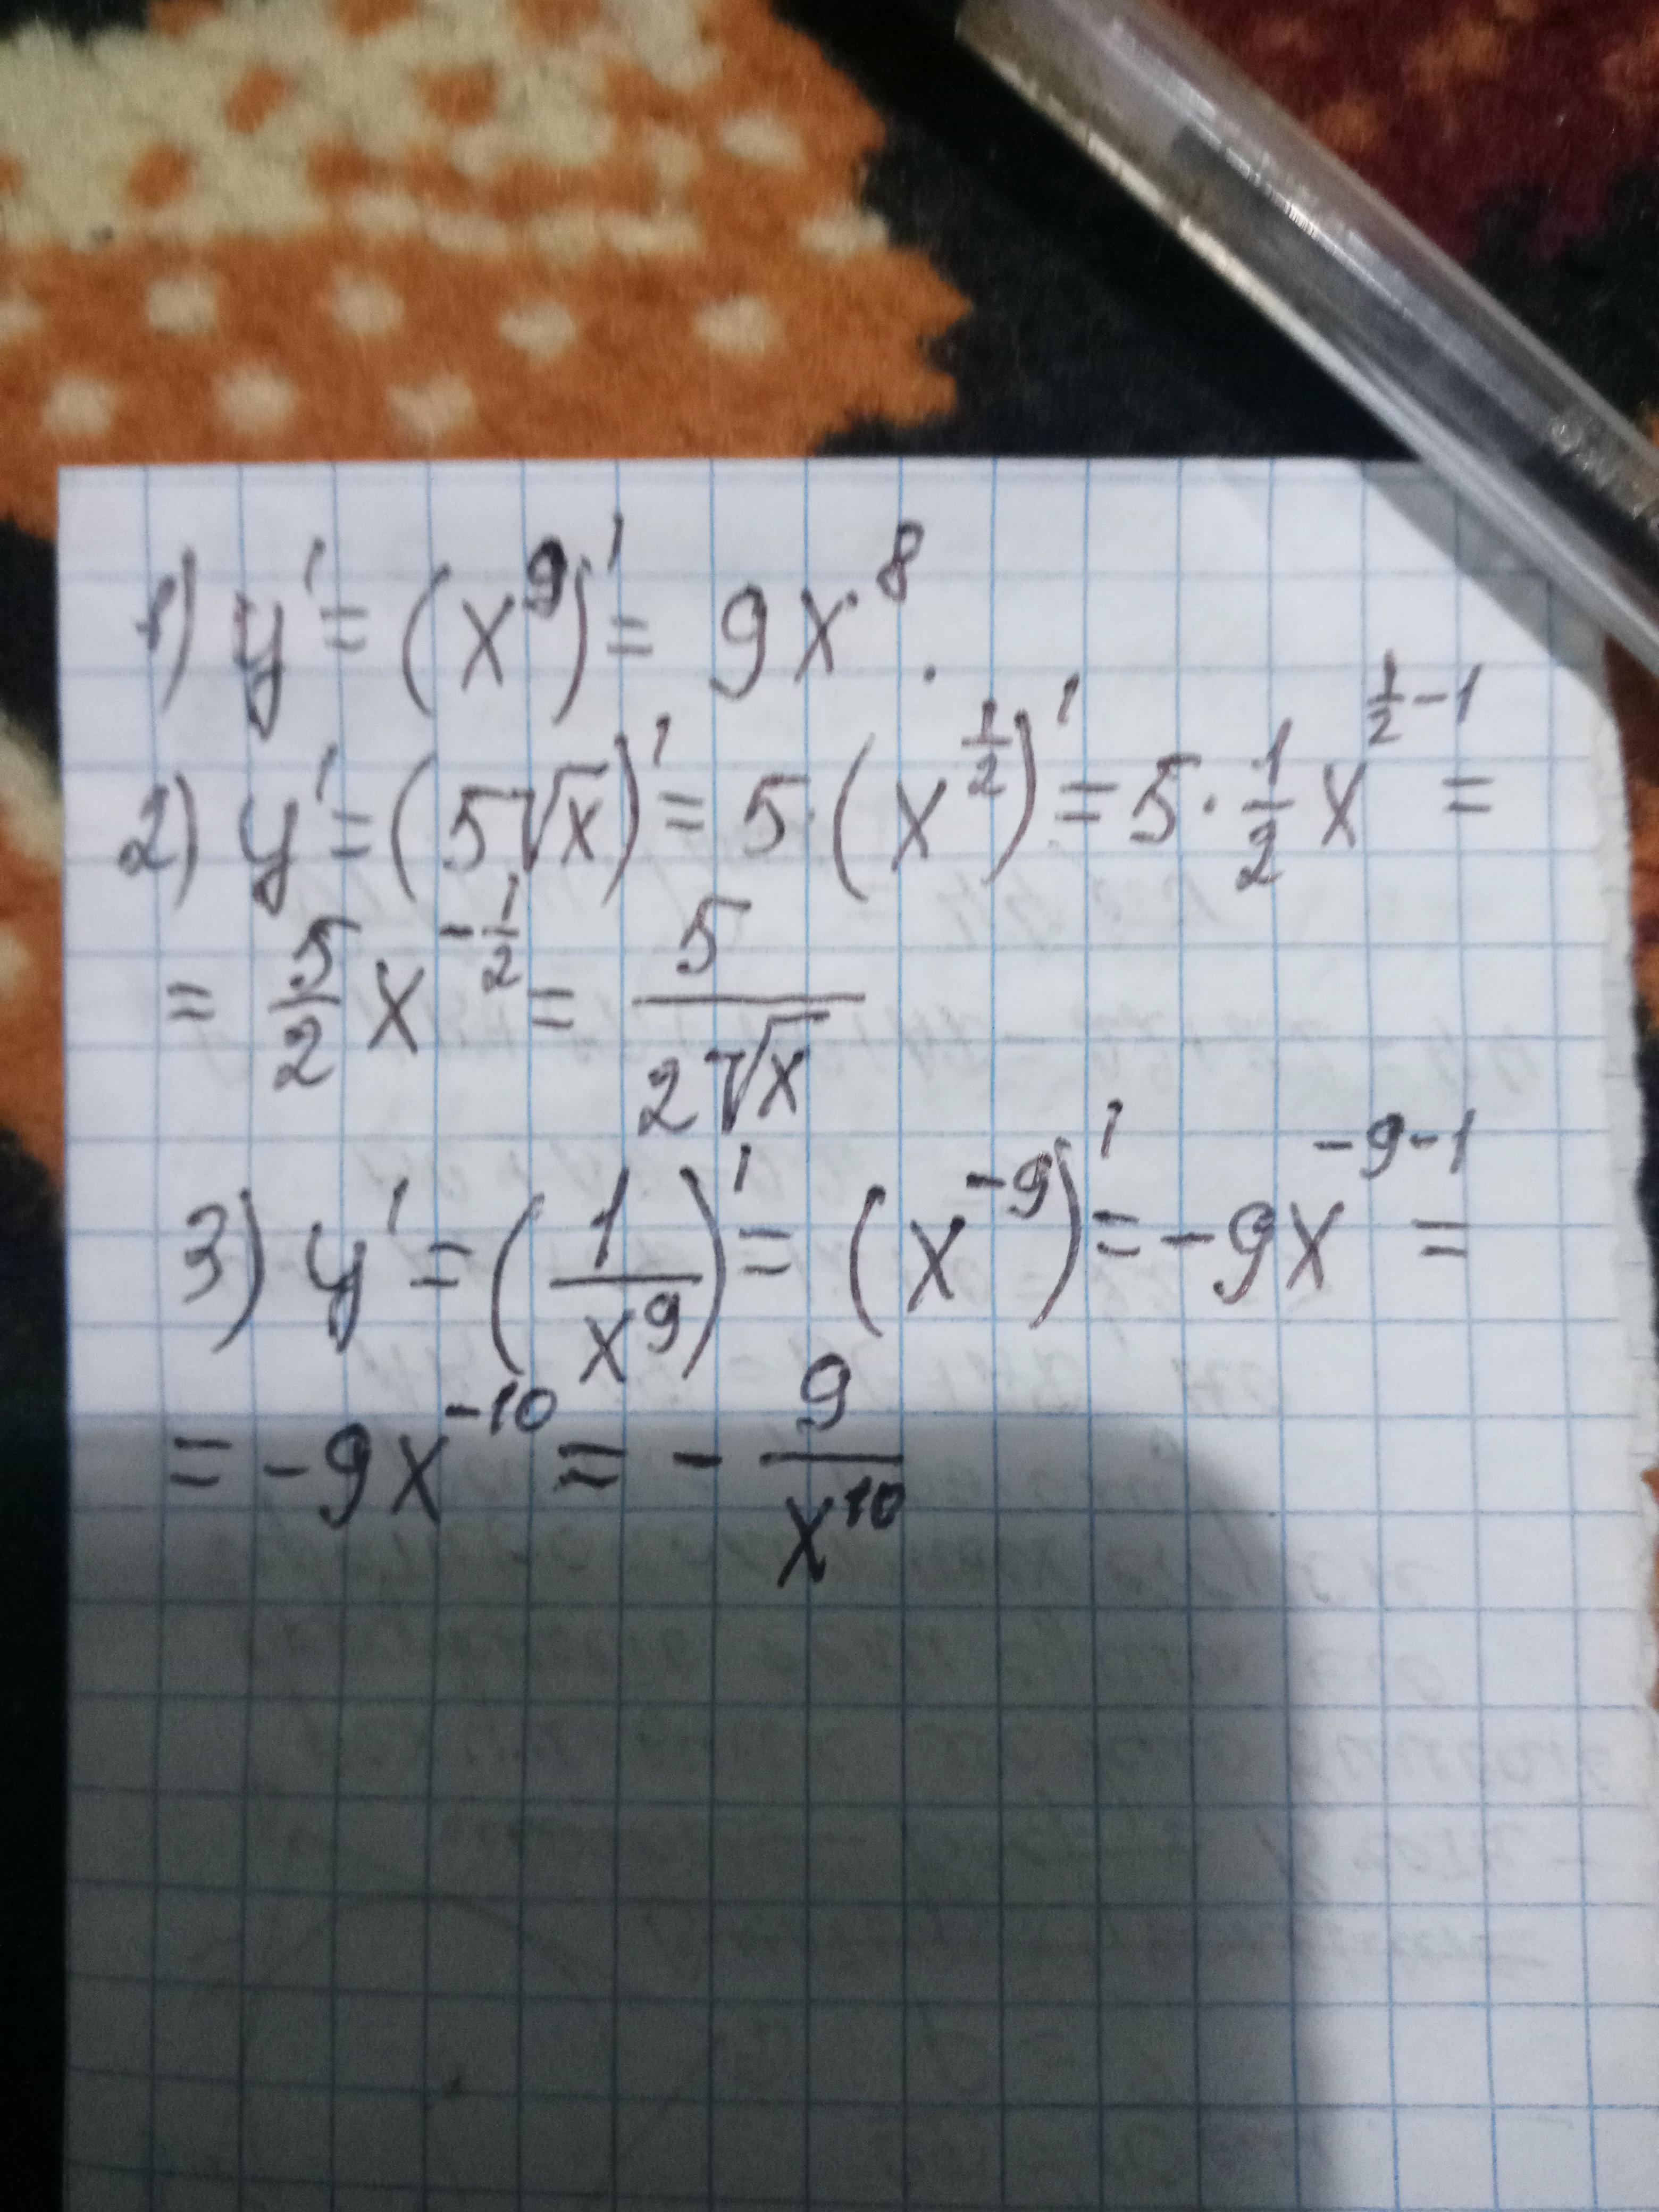 1) y' = (x⁹)' = 9x⁸.
2) y' = (5√x)' = 5·(x^(1/2))' = 5·1/2 x^(1/2-1) =
= 5/2 x^(-1/2) = 5/(2√x)
3) y' = (1/x⁹)' = (x⁻⁹)' = -9x⁻⁹⁻¹ =
= -9x⁻¹⁰ = -9/x¹⁰